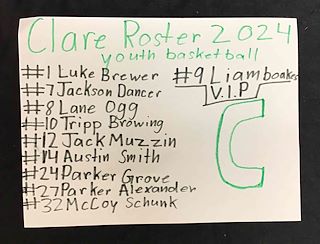 Clare Roster 2024
youth basketball
#1 Luke Brewer
#7 Jackson Dancer
#8 Lane Ogg
#10 Tripp Browing
#12 Jack Muzzin
#14 Austin Smith
#24 Parker Grove
#27 Parker Alexander
#32 McCoy Schunk
#9 Liam boakes
V.I.P
C